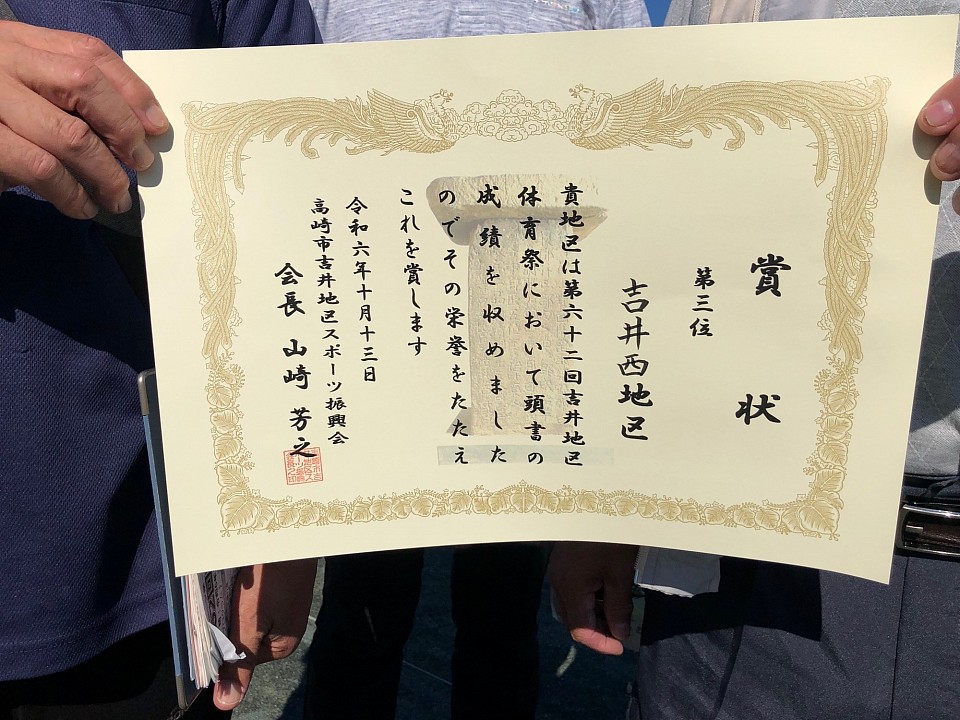 賞状
第三位
吉井西地区
貴地区は第六十二回吉井地区
体育祭において頭書の
成績を収めました
のでその栄誉をたたえ
これを賞します
令和六年十月十三日
高崎市吉井地区スポーツ振興会
会長 山崎芳之